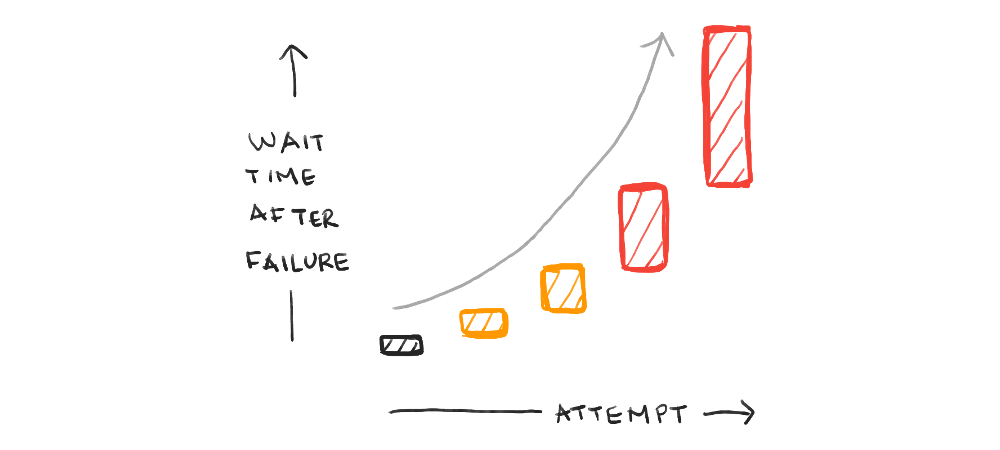 WAIT
TIME
AFTER
FAILURE
ATTEMPT